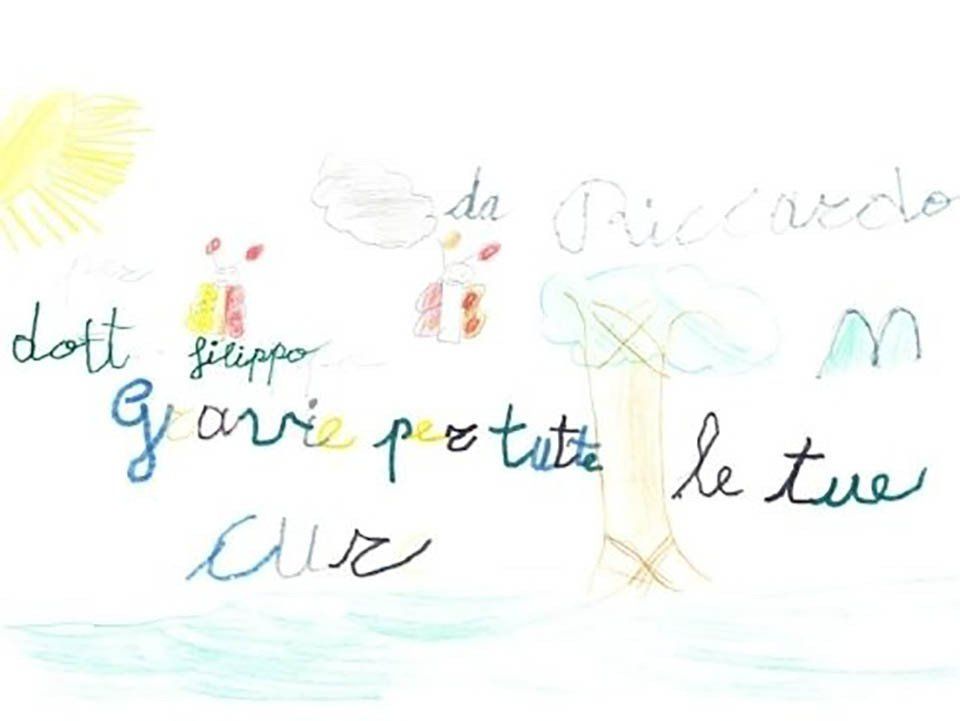 da Riccardo
per
dott filippo
Grazie per tutte le tue
cur